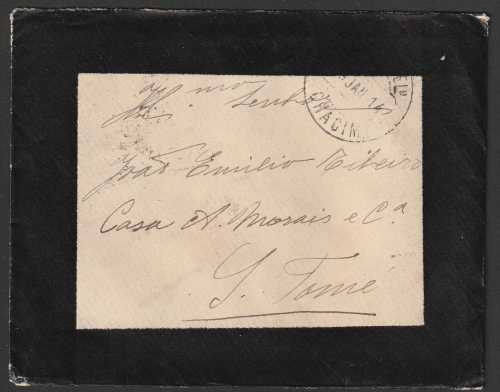 Ill.mo Senhor
João Emilio Ribeiro
Casa A. Morais e C.a
S. Tomé
JAN 14
GRACIM